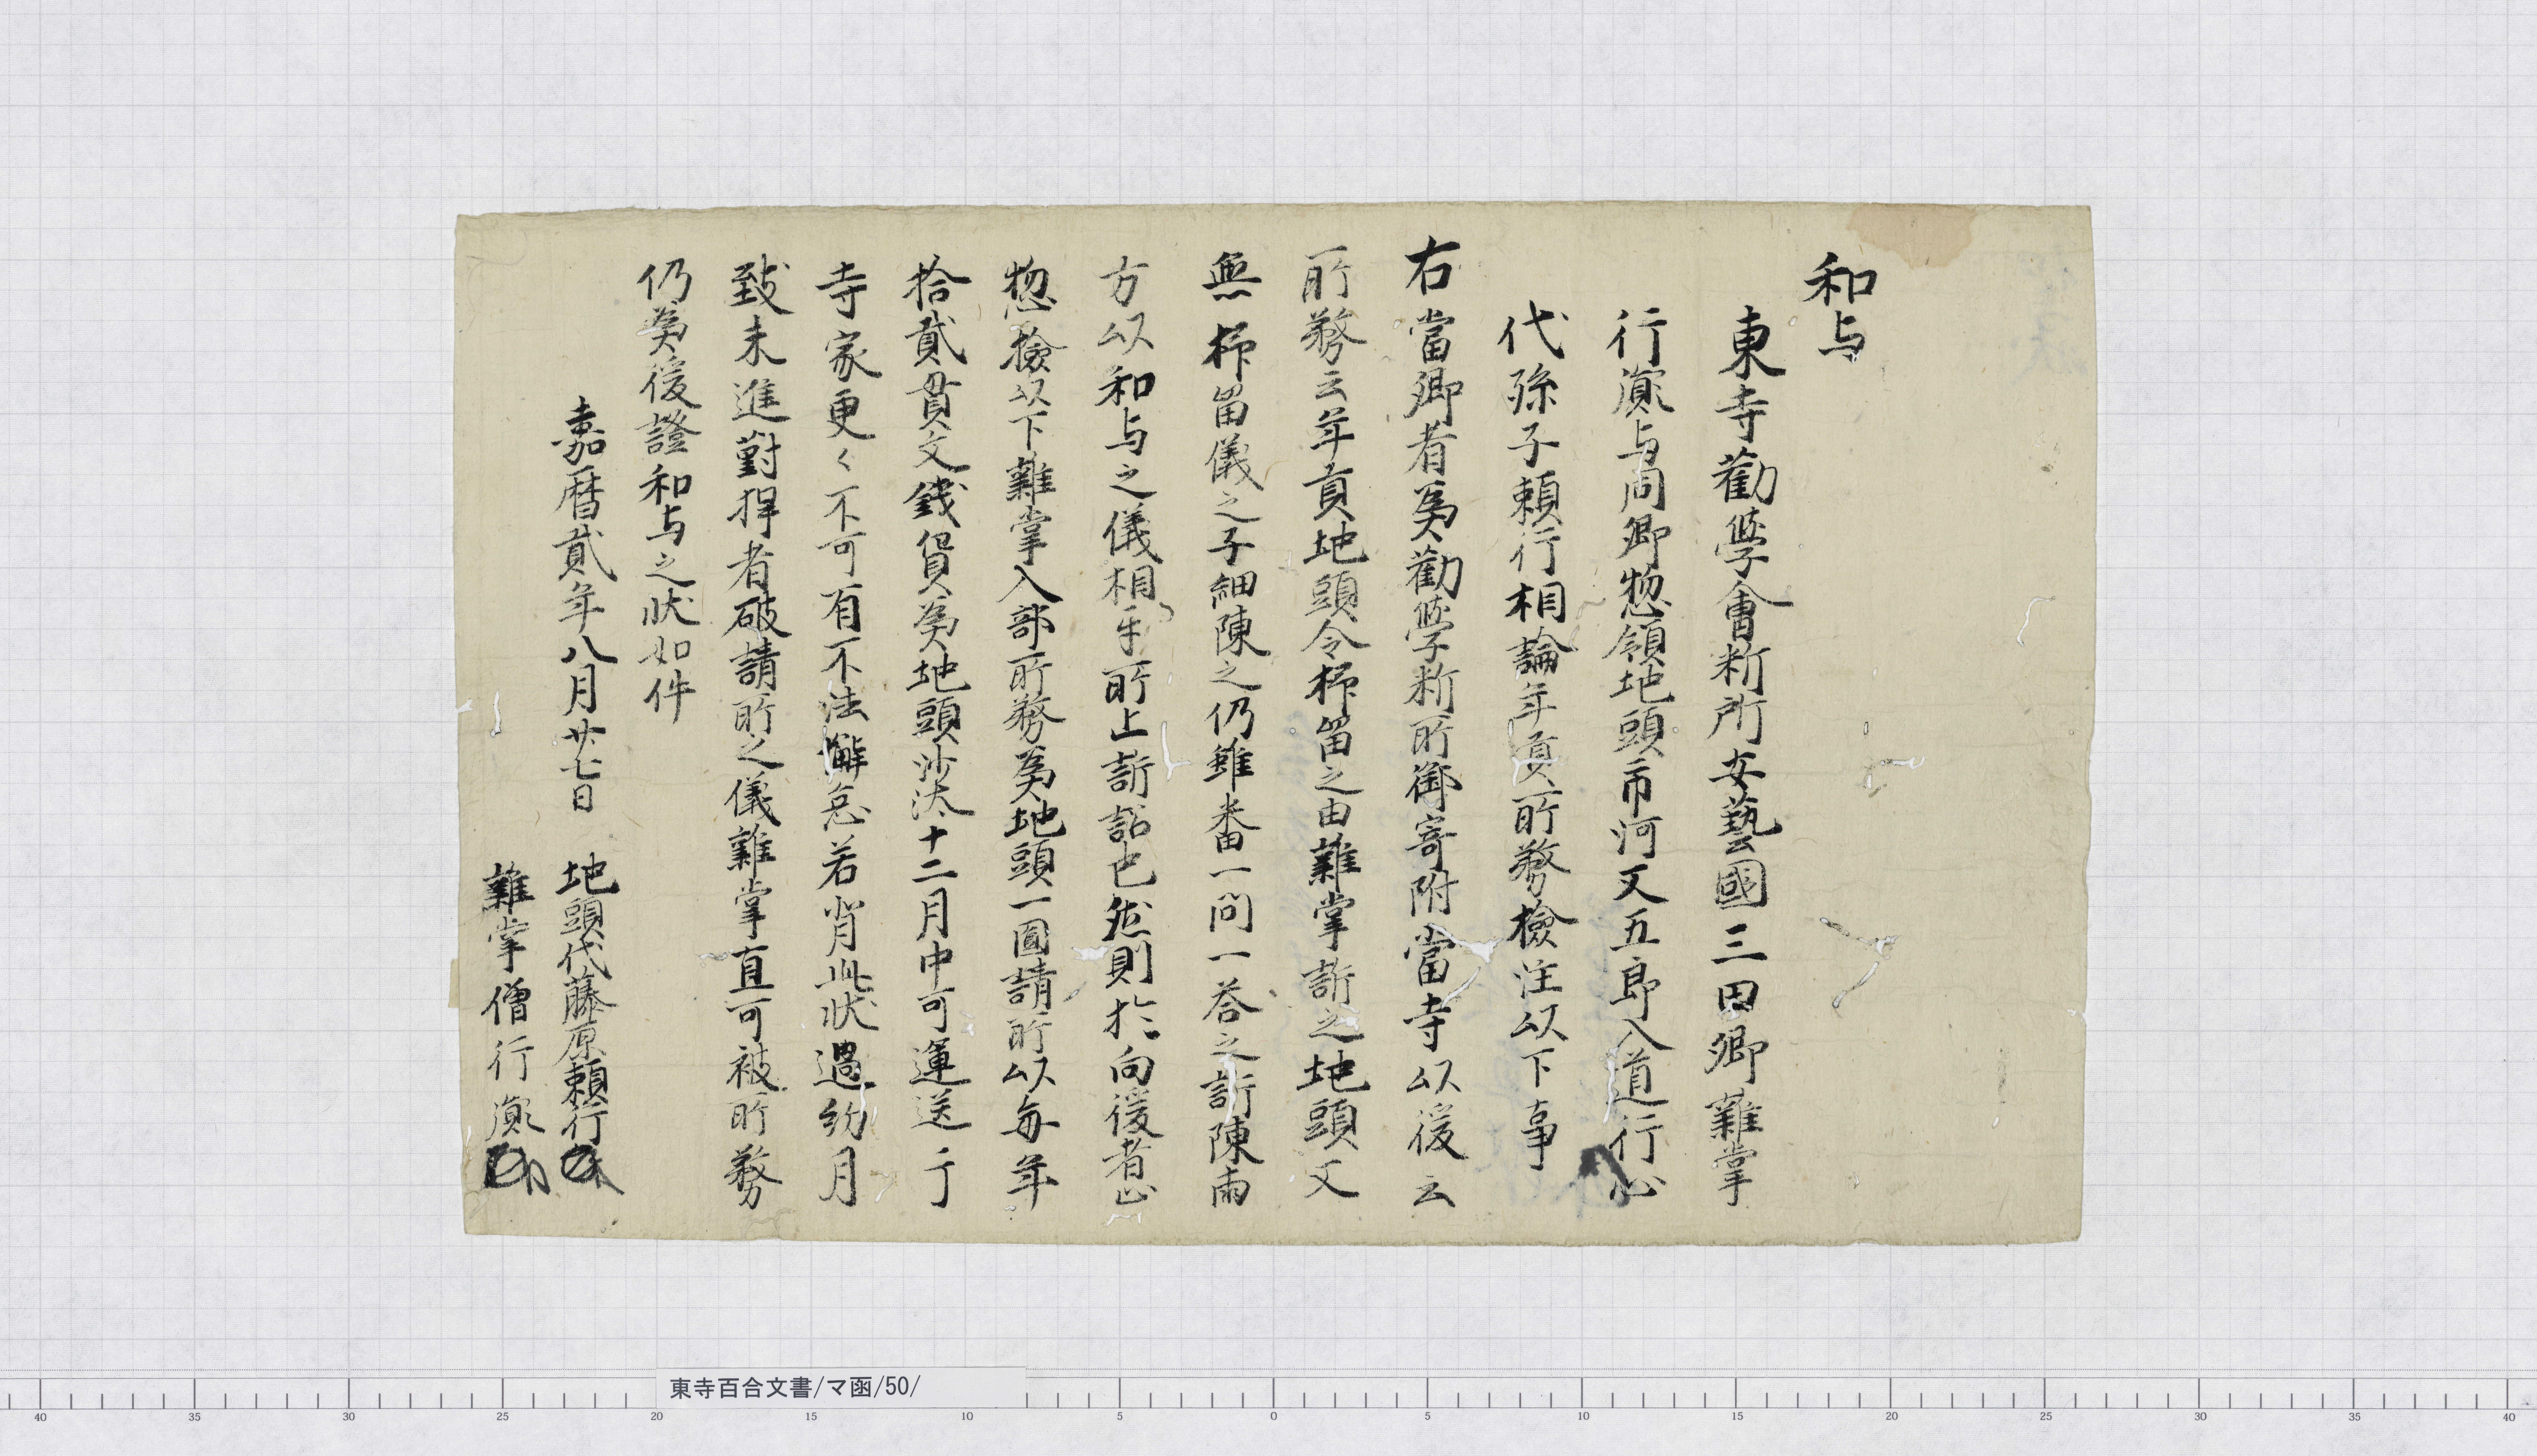 和与
東寺勸學會新所安藝國三田郷雜掌
行演与同郷惣領地頭市河又五郎入道行心
代孫子頼行相論年貢所務檢注以下事
右當郷者爲勸學新所御寄附當寺以後云
所務云年貢地頭令抑留之由雜掌訴之地頭又
無抑留儀之子細陳之仍雖番一問一荅之訴陳両
方以和与之儀相互所止訴詔也然則於向後者止
惣檢以下雜掌入部所務爲地頭一圓請所以毎年
拾貳貫文錢貨爲地頭沙汰十二月中可運送于
寺家更々不可有不法懈怠若背此状過約月
致未進對捍者破請所之儀雜掌直可被所務
仍爲後證和与之状如件
嘉暦貳年八月廿七日 地頭代藤原頼行
雜掌僧行演
東寺百合文書/マ函/50/
40 35 30 25 20 15 10 5 0 5 10 15 20 25 30 35 40